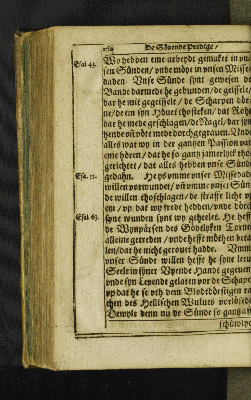 De Sövende Predige/
Esa. 43.
Wy hebben eme arbeydt gemaket in vn-
sen Sünden/ vnde möye in vnsen Misse-
daden. Vnse Sünde synt gewesen de
Bande darmede he gebunden/ de geissele/
dat he mit gegeisselt/ de Scharpen döre-
ne/ de em syn Höuet thosteken/ dat Rohr
dat he mede geschlagen/ de Nagel/ dat syn
hende vnde vöte mede dorchgegrauen. Vnde
alles wat wy in der gantzen Passion van
eme hören/ dat he so gantz jamerlyck tho-
gerichtet/ das alles hebben vnse Sünde
Esa. 53.
gedahn. He ys vmme vnser Missedadt
willen vorwundet/ vn vmme vnser Sün-
de willen thoschlagen/ de straffe licht vp
em/ vp dat wy frede hedden/ vnde dorch
Esa. 63.
syne wunden synt wy geheelet. He hefft
de Wynpersen des Gödtlyken Torns
alleine getreden/ vnde hefft möthen beta-
len/ dat he nicht gerouet hadde. Vmme
vnser Sünde willen hefft he syne leue
Seele in syner Vyende Handt gegeuen
vnde syn Leuendt gelaten vor de Schape
vp dat he se vth dem Blodtdörstigen ra-
chen des Hellischen Wulues vorlösede
Dewyle denn nu de Sünde so gantz aff-